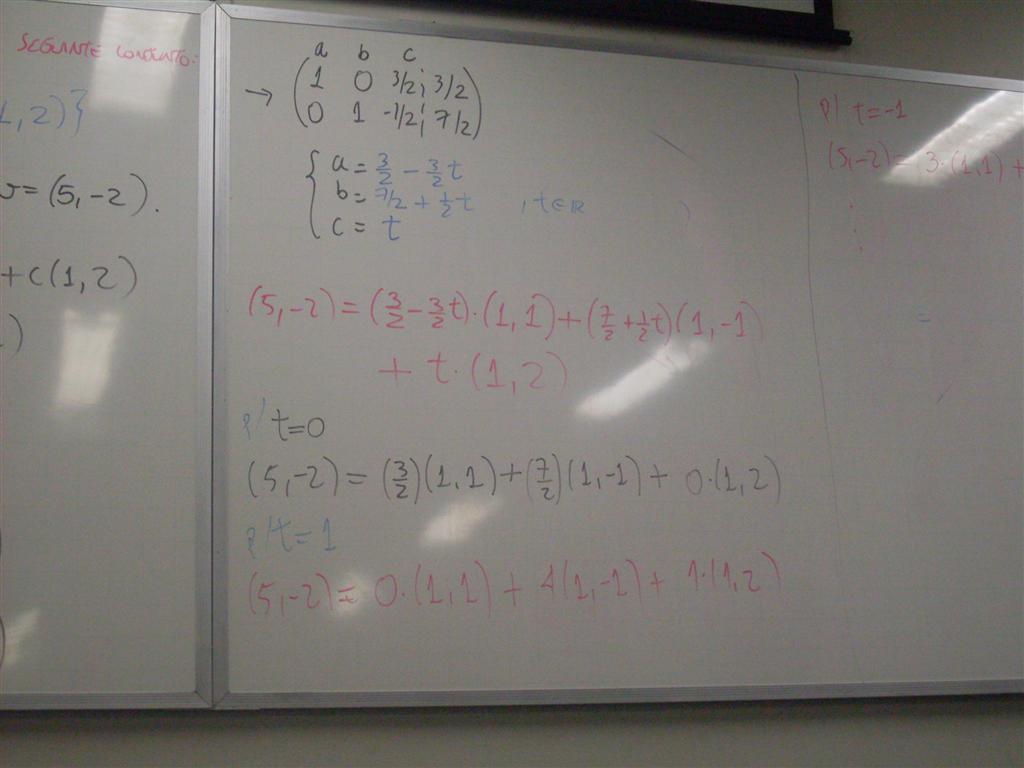 SEGUINTE CONJUNTO:
1,2)}
v=(5,-2).
+c(1,2)
)
a b c
→ (1 0 3/2 ¦ 3/2)
(0 1 -1/2 ¦ 7/2)
{ a = 3/2 - 3/2 t
b = 7/2 + 1/2 t , t∈ℝ
c = t
(5,-2) = (3/2 - 3/2 t)·(1,1)+(7/2 + 1/2 t)(1,-1)
+ t·(1,2)
p/ t=0
(5,-2) = (3/2)(1,1)+(7/2)(1,-1)+ 0·(1,2)
p/t=1
(5,-2)= 0·(1,1) + 4(1,-1)+ 1·(1,2)
p/ t=-1
(5,-2)=(3·(1,1)+
=